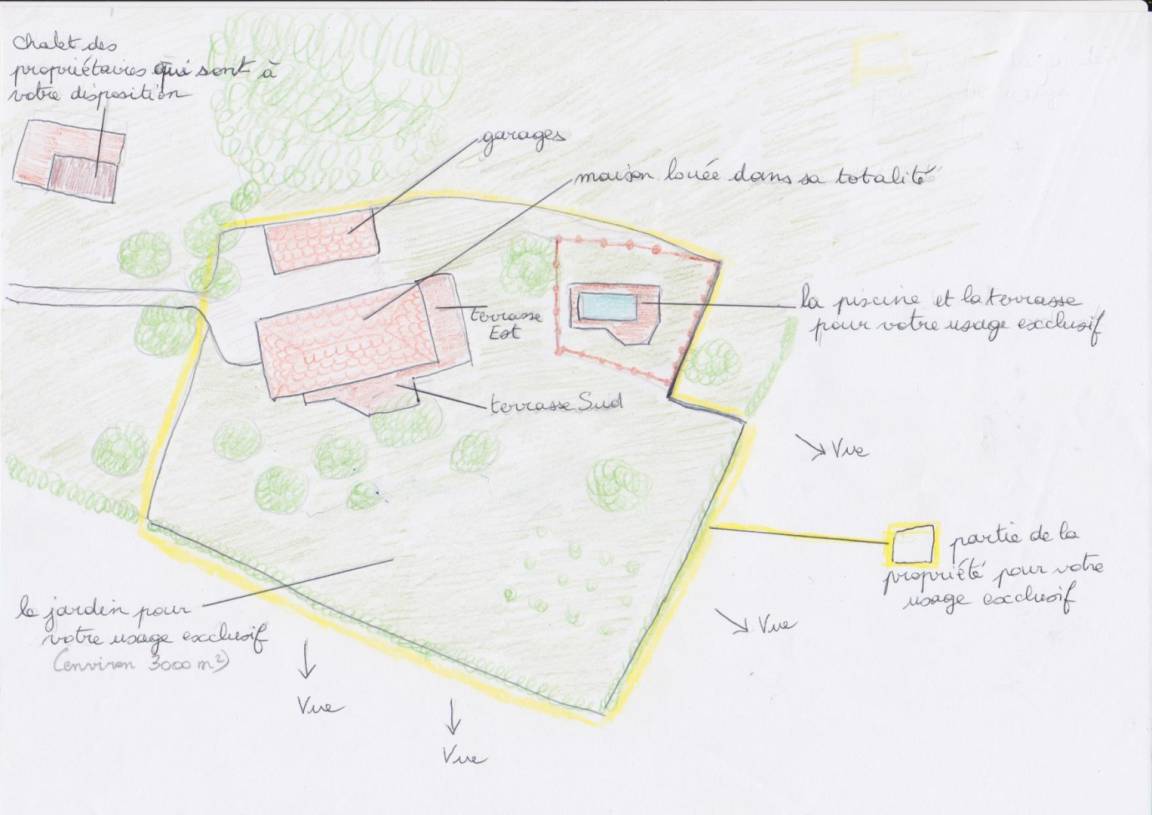 chalet des
propriétaires qui sont à
votre disposition
garages
maison louée dans sa totalité
la piscine et la terrasse
pour votre usage exclusif
terrasse
Est
terrasse Sud
Vue
partie de la
propriété pour votre
usage exclusif
le jardin pour
votre usage exclusif
(environ 3000 m²)
Vue
Vue
Vue